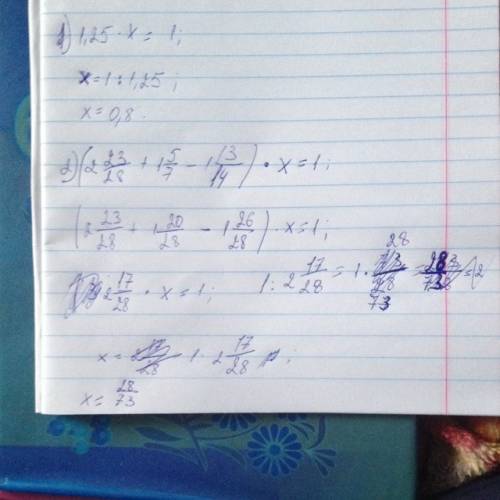 1) 1,25 · x = 1;
x = 1 : 1,25;
x = 0,8.
2) (2 23/28 + 1 5/7 - 1 13/14) · x = 1;
(2 23/28 + 1 20/28 - 1 26/28) · x = 1;
2 17/28 · x = 1; 1 : 2 17/28 = 1 · 28/73 =
x = 1 · 2 17/28;
x = 28/73